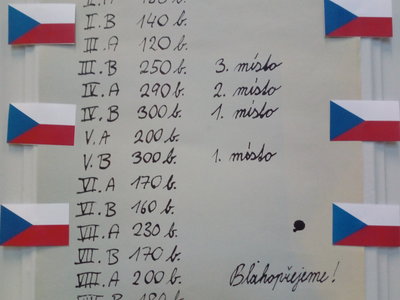 II.B 140 b.
III.A 120 b.
III.B 250 b. 3. místo
IV.A 290 b. 2. místo
IV.B 300 b. 1. místo
V.A 200 b.
V.B 300 b. 1. místo
VI.A 170 b.
VI.B 160 b.
VII.A 230 b.
VII.B 170 b.
VIII.A 200 b. Blahopřejeme!